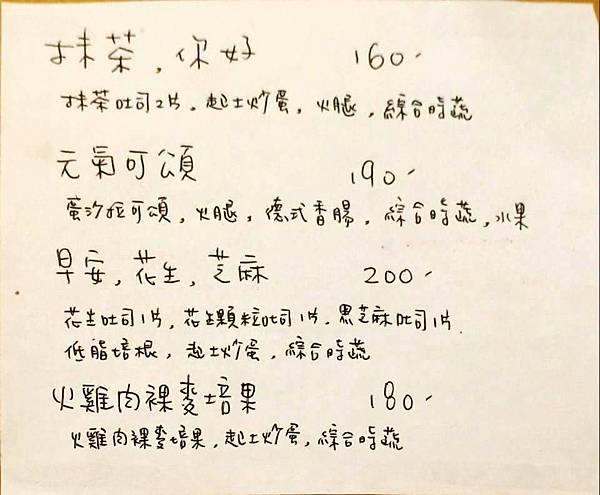 抹茶,你好 160-
抹茶吐司2片,起士炒蛋,火腿,綜合時蔬
元氣可頌 190-
蛋沙拉可頌,火腿,德式香腸,綜合時蔬,水果
早安,花生,芝麻 200-
花生吐司1片,花生顆粒吐司1片,黑芝麻吐司1片.
低脂培根,起士炒蛋,綜合時蔬
火雞肉裸麥培果 180-
火雞肉裸麥培果,起士炒蛋,綜合時蔬